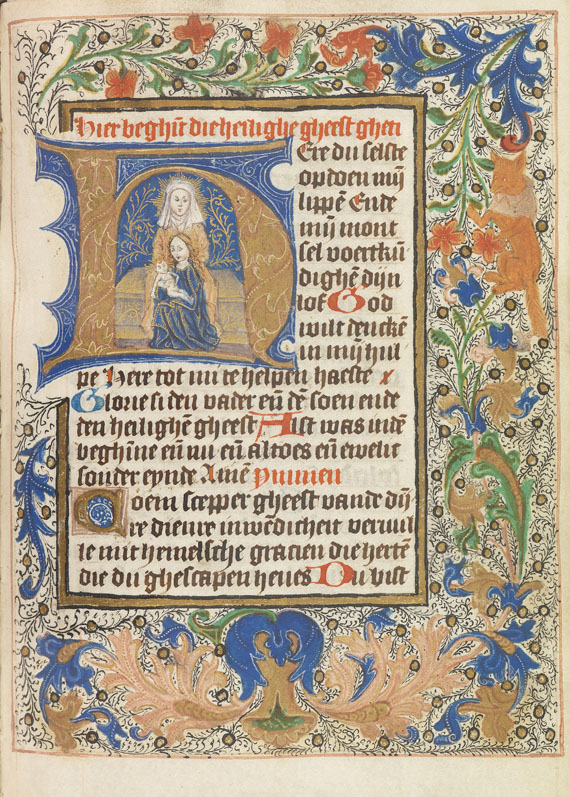 Hier beghīt die heilighe gheest ghen
Ere du selste
opdoen mij
lippē Ende
mij mont
sel voertkū
dighē dijn
lof God
wilt denckē
in mij hul
pe Here tot mi te helpen haeste
Glorie si den vader eñ dē soen ende
den heilighē gheest Alst was indē
beghīne eñ nu eñ altoes eñ ewelic
sonder eynde Amē ymmen
oem scepper gheest vande dij
re dienre inwēdicheit vervul
le mit hemelsche gracien die hertē
die du ghescapen heves Du bist